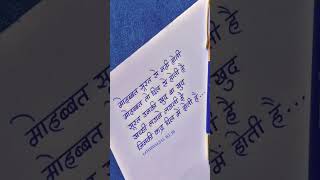 मोहब्बत सूरत से नही होती
मोहब्बत तो दिल से होती है
सूरत उनकी खुद ब खुद
अच्छी लगने लगती है
जिनकी कद्र दिल में होती है...